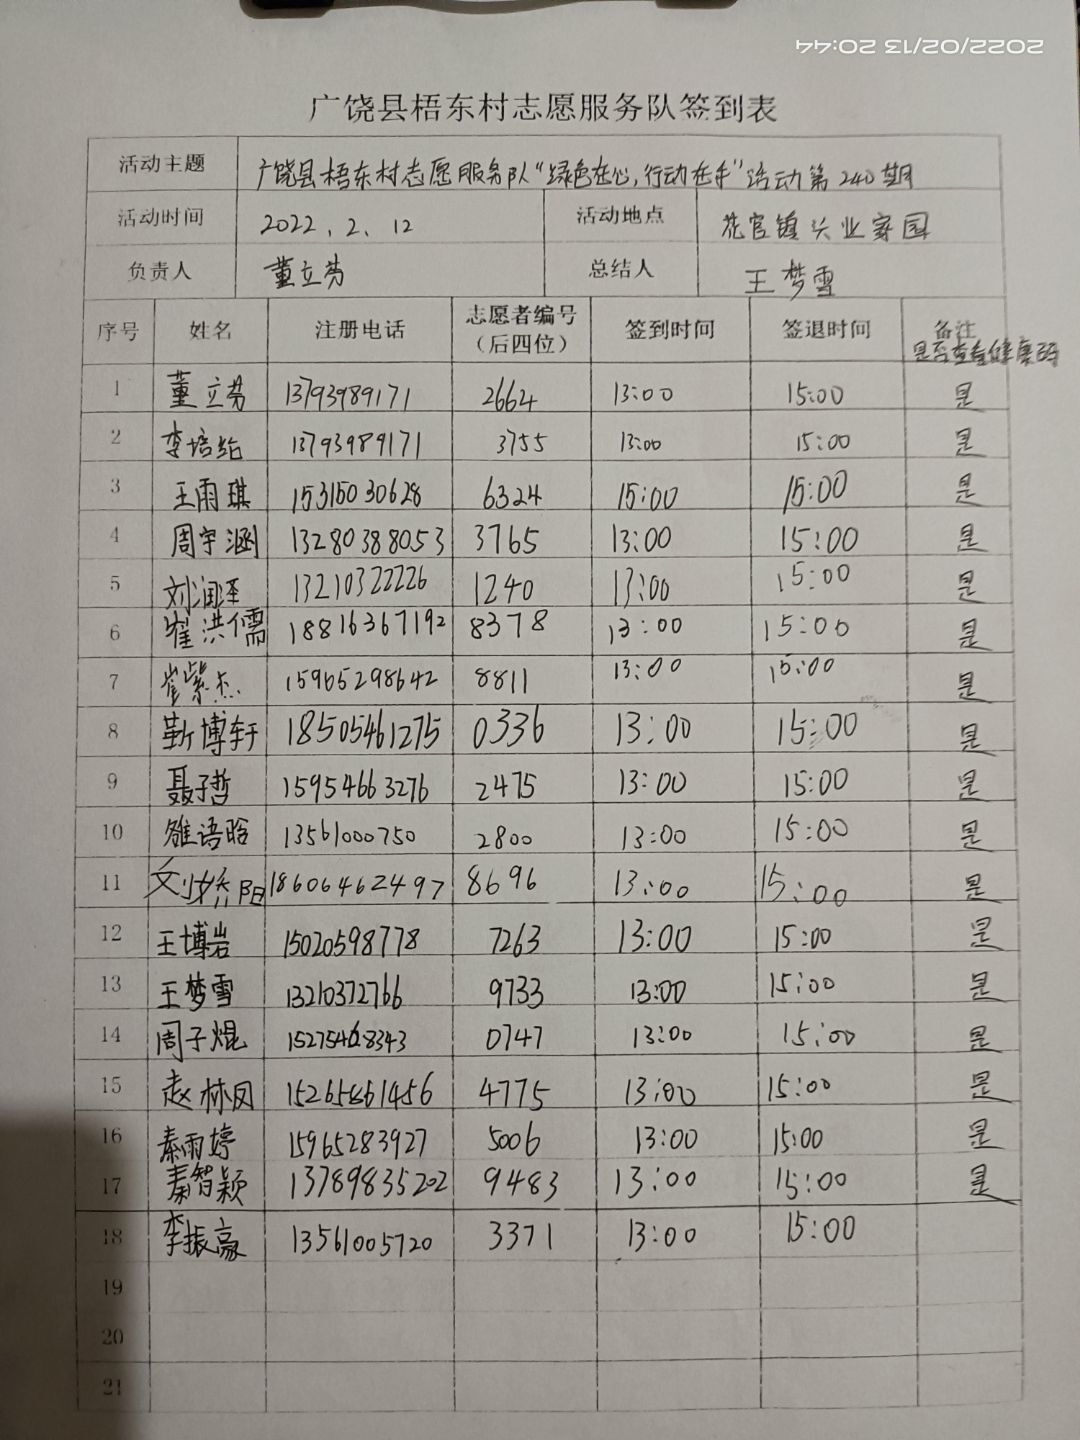 2022/02/13 20:44
广饶县梧东村志愿服务队签到表
活动主题 广饶县梧东村志愿服务队“绿色在心,行动在手”活动第240期
活动时间 2022.2.12 活动地点 花官镇兴业家园
负责人 董立芬 总结人 王梦雪
序号 姓名 注册电话 志愿者编号（后四位） 签到时间 签退时间 备注 是否查看健康码
1 董立芬 13793989171 2664 13:00 15:00 是
2 李培 13793989171 3755 13:00 15:00 是
3 王雨琪 15315030628 6324 15:00 15:00 是
4 周宇涵 13280388053 3765 13:00 15:00 是
5 刘润泽 13210322226 1240 13:00 15:00 是
6 崔洪儒 18816367192 8378 13:00 15:00 是
7 崔紫杰 15965298642 8811 13:00 15:00 是
8 靳博轩 18505461275 0336 13:00 15:00 是
9 聂子哲 15954663276 2475 13:00 15:00 是
10 雒语晗 13561000750 2800 13:00 15:00 是
11 阳 18606462497 8696 13:00 15:00 是
12 王博岩 15020598778 7263 13:00 15:00 是
13 王梦雪 13210372766 9733 13:00 15:00 是
14 周子焜 15275468343 0747 13:00 15:00 是
15 赵林凤 15265861456 4775 13:00 15:00 是
16 秦雨婷 15965283927 5006 13:00 15:00 是
17 秦智颖 13789835202 9483 13:00 15:00 是
18 李振豪 13561005720 3371 13:00 15:00
19
20
21